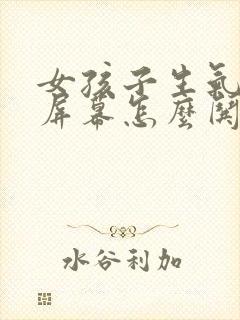 女孩子生氣
屏幕怎麼関
水谷利加